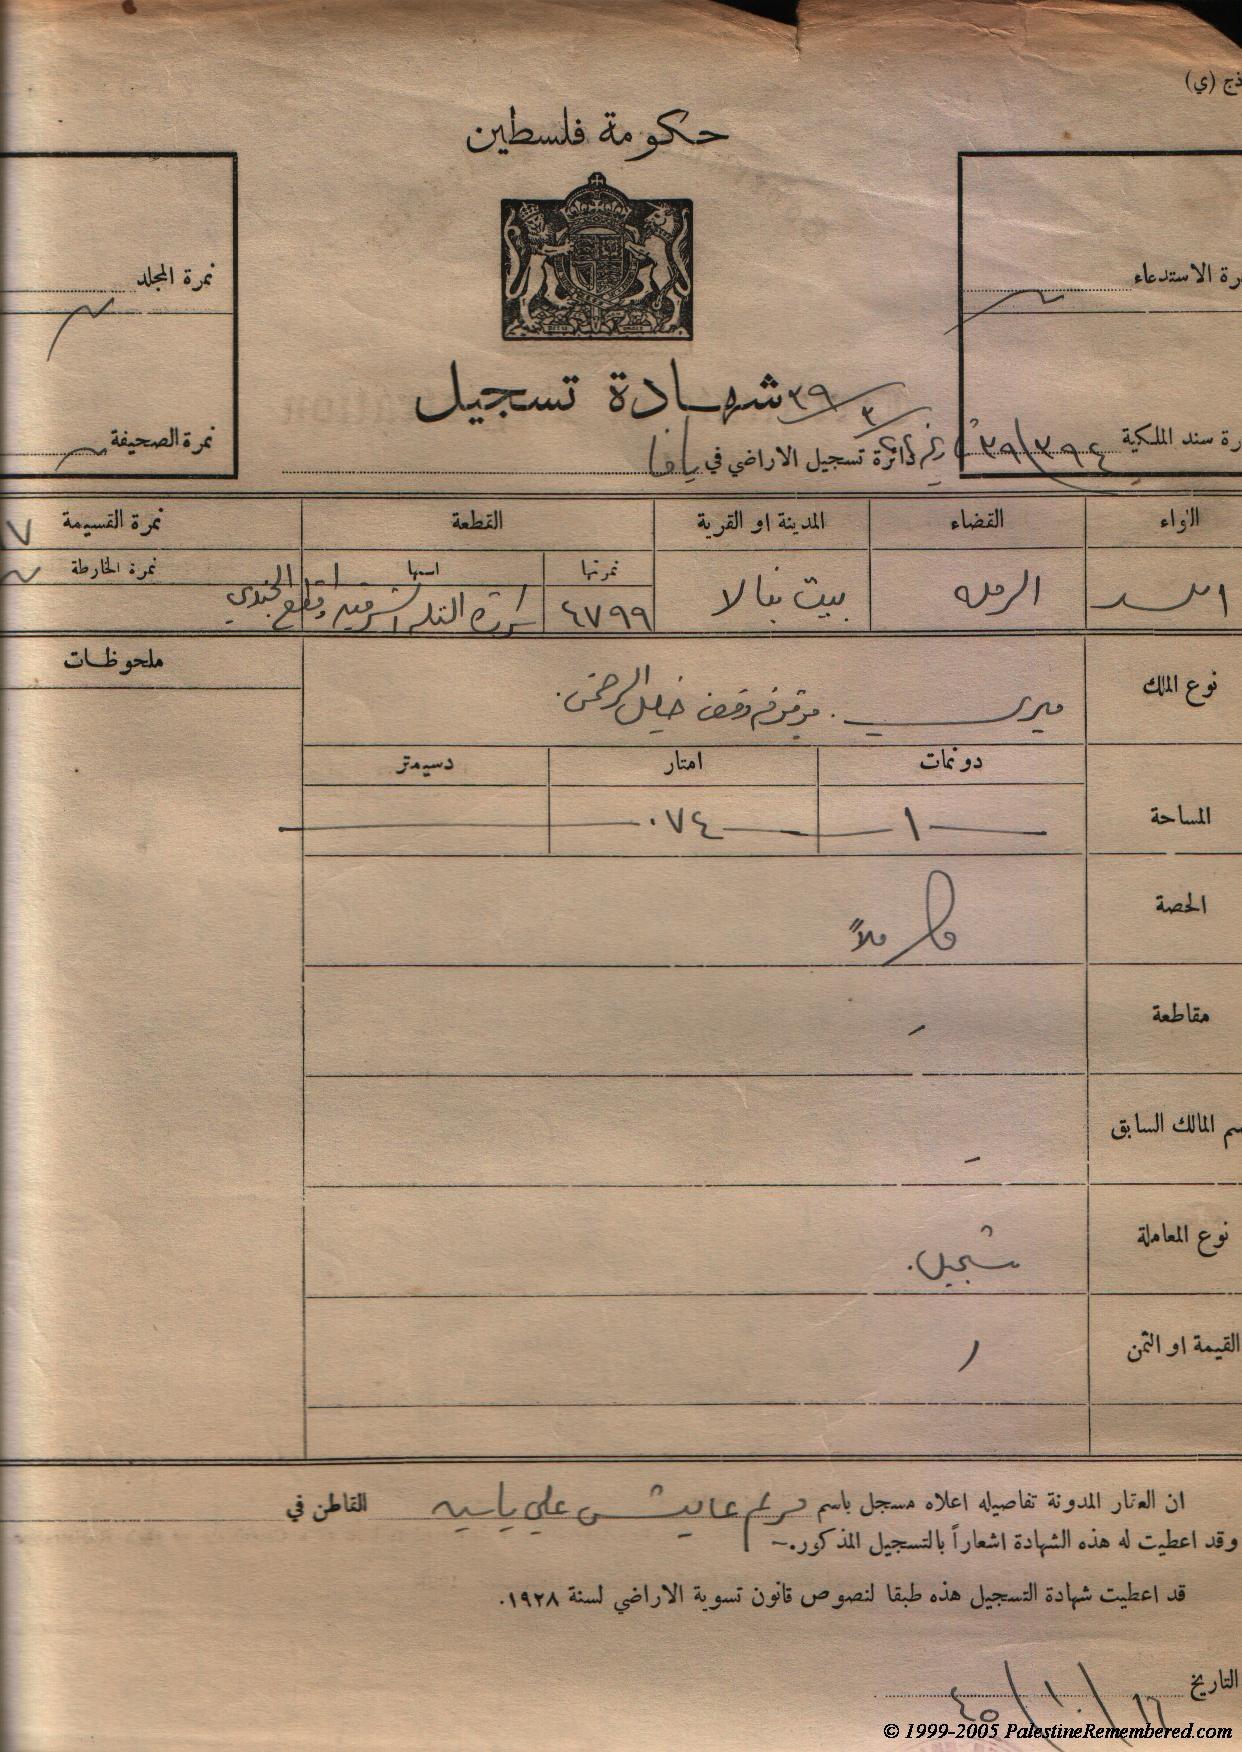 ذج (ي)
حكومة فلسطين
رة الاستدعاء
نمرة المجلد
شهادة تسجيل ٣٩/٣
رة سند الملكية ٣٩/٣٩٤
دائرة تسجيل الاراضي في يافا
نمرة الصحيفة
اللواء القضاء المدينة او القرية القطعة نمرة القسيمة ٧
نمرتها اسمها نمرة الخارطة
اللد الرمله بيت نبالا ٤٧٩٩
نوع الملك ملحوظات
ميري . وقف خليل الرحمن .
دونمات امتار دسيمتر
المساحة ١ ٠٧٤
الحصة
كاملاً
مقاطعة -
سم المالك السابق -
نوع المعاملة
تسجيل .
القيمة او الثمن
ان العقار المدونة تفاصيله اعلاه مسجل باسم مريم عايش علي ياسين القاطن في
وقد اعطيت له هذه الشهادة اشعاراً بالتسجيل المذكور .-
قد اعطيت شهادة التسجيل هذه طبقا لنصوص قانون تسوية الاراضي لسنة ١٩٢٨ .
التاريخ ١٦/١٠/٤٥
© 1999-2005 PalestineRemembered.com